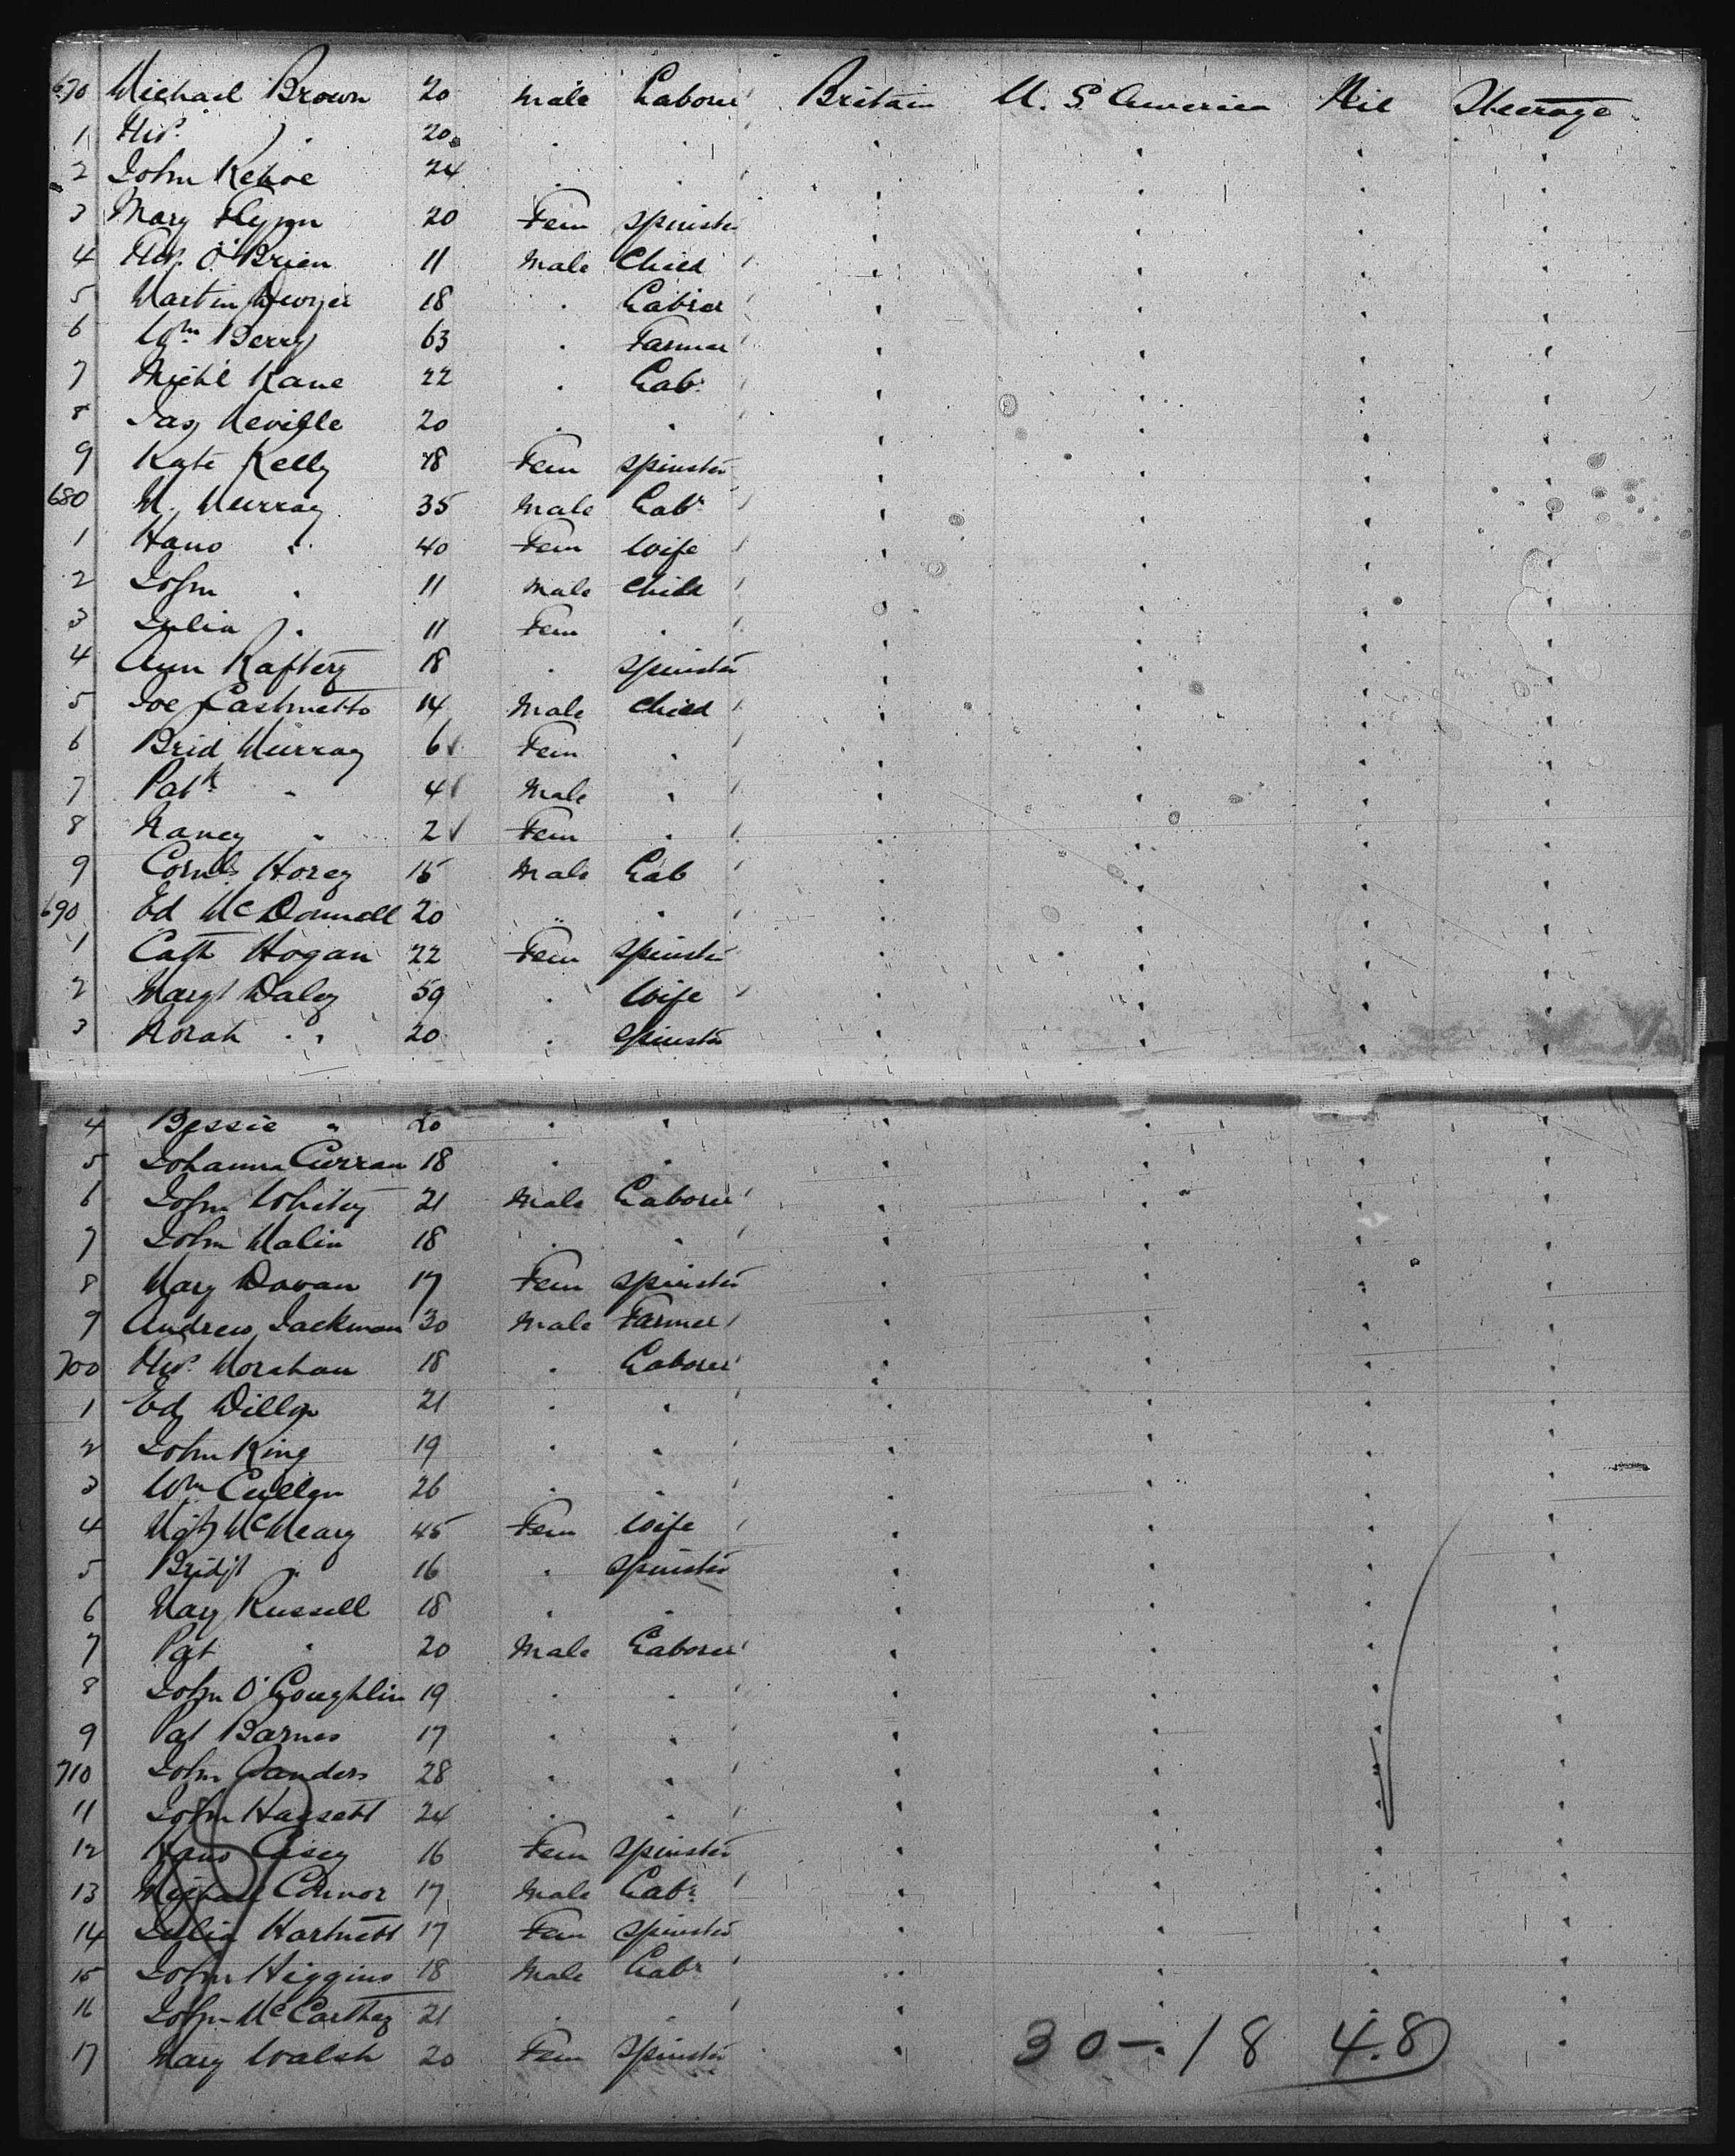 670 Michael Brown 20 Male Laborer Britain U. S. America Nil Steerage
1 20
2 John Kehoe 24
3 Mary Flynn 20 Fem Spinster
4 O'Brien 11 Male Child
5 Martin Dwyer 18 Labrer
6 Wm Berry 63 Farmer
7 Michl Kane 22 Labr
8 Jas Neville 20
9 Kate Kelly 18 Fem Spinster
680 M. Murray 35 Male Labr
1 Hano " 40 Fem Wife
2 John " 11 Male Child
3 Julia " 11 Fem "
4 Ann Raftery 18 " Spinster
5 Joe 14 Male Child
6 Brid Murray 6 Fem "
7 Patk " 4 Male "
8 Nancy " 2 Fem "
9 Cornls Horey 15 Male Lab
690 Ed McDonnell 20 " "
1 Cath Hogan 22 Fem Spinster
2 Margt Daley 59 " Wife
3 Norah " 20 " Spinster
4 Bessie " 20 " "
5 Johanna Curran 18 " "
6 John Whitey 21 Male Laborer
7 John Malin 18 " "
8 Mary Davan 17 Fem Spinster
9 Andrew Jackman 30 Male Farmer
700 Morahan 18 " Laborer
1 Ed Dillon 21 " "
2 John King 19 " "
3 Wm Cullen 26 " "
4 Mgt 45 Fem Wife
5 Bridgt " 16 " Spinster
6 Mary Russell 18 " "
7 Pat " 20 Male Laborer
8 John O'Coughlin 19 " "
9 Pat Barnes 17 " "
710 John Sanders 28 " "
11 John Hassett 24 " "
12 Hano Casey 16 Fem Spinster
13 Michael Connor 17 Male Labr
14 Julia Hartnett 17 Fem Spinster
15 John Higgins 18 Male Labr
16 John McCarthy 21 " "
17 Mary Walsh 20 Fem Spinster
30-.18 4.8